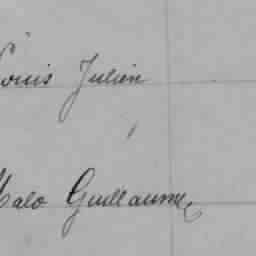 Louis Julien
Malo Guillaume